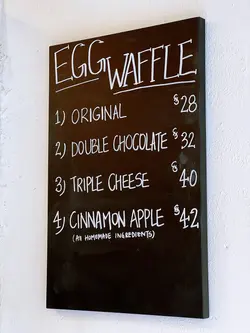 EGG WAFFLE
1) ORIGINAL $28
2) DOUBLE CHOCOLATE $32
3) TRIPLE CHEESE $40
4) CINNAMON APPLE $42
(all HOMEMADE INGREDIENTS)